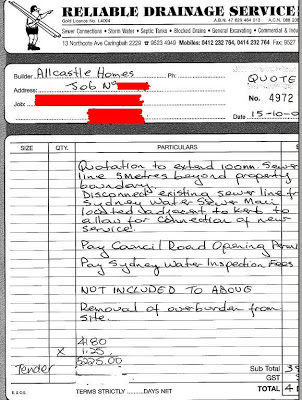 RELIABLE DRAINAGE SERVICE
Gold Licence No. 14094
A.B.N. 47 623 464 013 A.C.N. 086 236
Sewer Connections • Storm Water • Septic Tanks • Blocked Drains • General Excavating • Commercial & Indu
13 Northcote Ave Caringbah 2229 ☎ 9523 4949 Mobiles: 0412 232 764, 0414 232 764 Fax: 9527
Builder: Allcastle Homes Ph:
QUOTE
Address: Job No
No. 4972
Job:
Date: 15-10-0
SIZE QTY. PARTICULARS
Quotation to extend 100mm Sewer
line 5 metres beyond property
boundary.
Disconnect existing sewer line fr
Sydney Water Sewer Main
located adjacent to kerb to
allow for connection of new
service.
Pay Council Road Opening Perm
Pay Sydney Water Inspection Fees
NOT INCLUDED TO ABOVE
Removal of overburden from
site.
4180
X 1.25
Tender 5225.00
Sub Total 3
GST
E & O E TERMS STRICTLY ........DAYS NET TOTAL 4